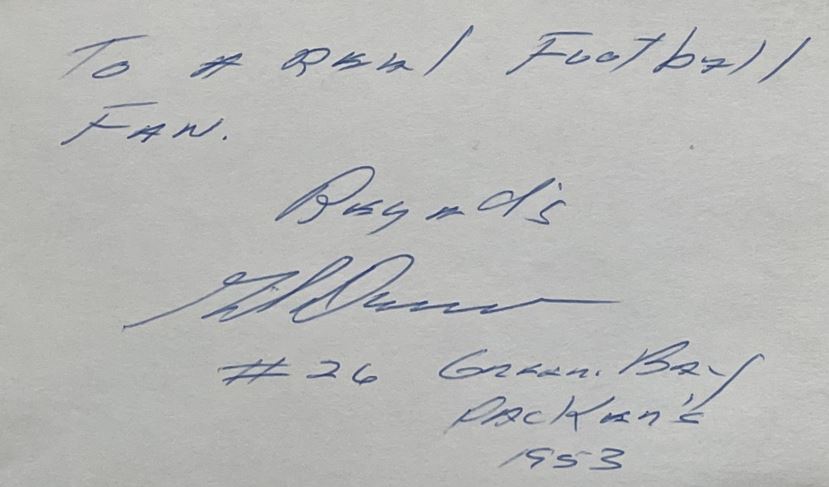 To A Real Football
FAN.
Regards
Gib Dawson
#26 Green Bay
Packer's
1953